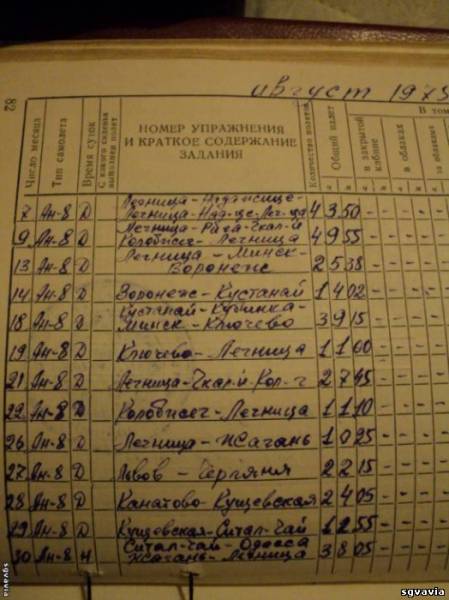 август 197
82
Число месяца
Тип самолета
Время суток
С какого сиденья выполнял полет
НОМЕР УПРАЖНЕНИЯ
И КРАТКОЕ СОДЕРЖАНИЕ
ЗАДАНИЯ
Количество полетов
Общий налет
В том
в закрытой кабине
в облаках
за облаками
7 Ан-8 Д 4 3 50 - - - -
Легница
9 Ан-8 Д Легница - 4 9 55 - - - -
Колобжег - Легница
13 Ан-8 Д Легница - Минск - 2 5 38 - - - -
Воронеж
14 Ан-8 Д Воронеж - Кустанай 1 4 02 - - - -
Кустанай - Кубинка -
18 Ан-8 Д Минск - Ключево 3 9 15 - - - -
19 Ан-8 Д Ключево - Легница 1 1 00 - - - -
21 Ан-8 Д Легница - Чкал-й Кол-г 2 7 45 - - - -
22 Ан-8 Д Колобжег - Легница 1 1 10 - - - -
26 Ан-8 Д Легница - Жагань 1 0 25 - - - -
27 Ан-8 Д Львов - 2 2 15 - - - -
28 Ан-8 Д Канатово - Кущевская 2 4 05 - - - -
29 Ан-8 Д Кущевская - Ситал-Чай 1 2 55 - - - -
Ситал-Чай - Одесса
30 Ан-8 Н Жагань - Легница 3 8 05 - - - -
sgvavia
sgvavia